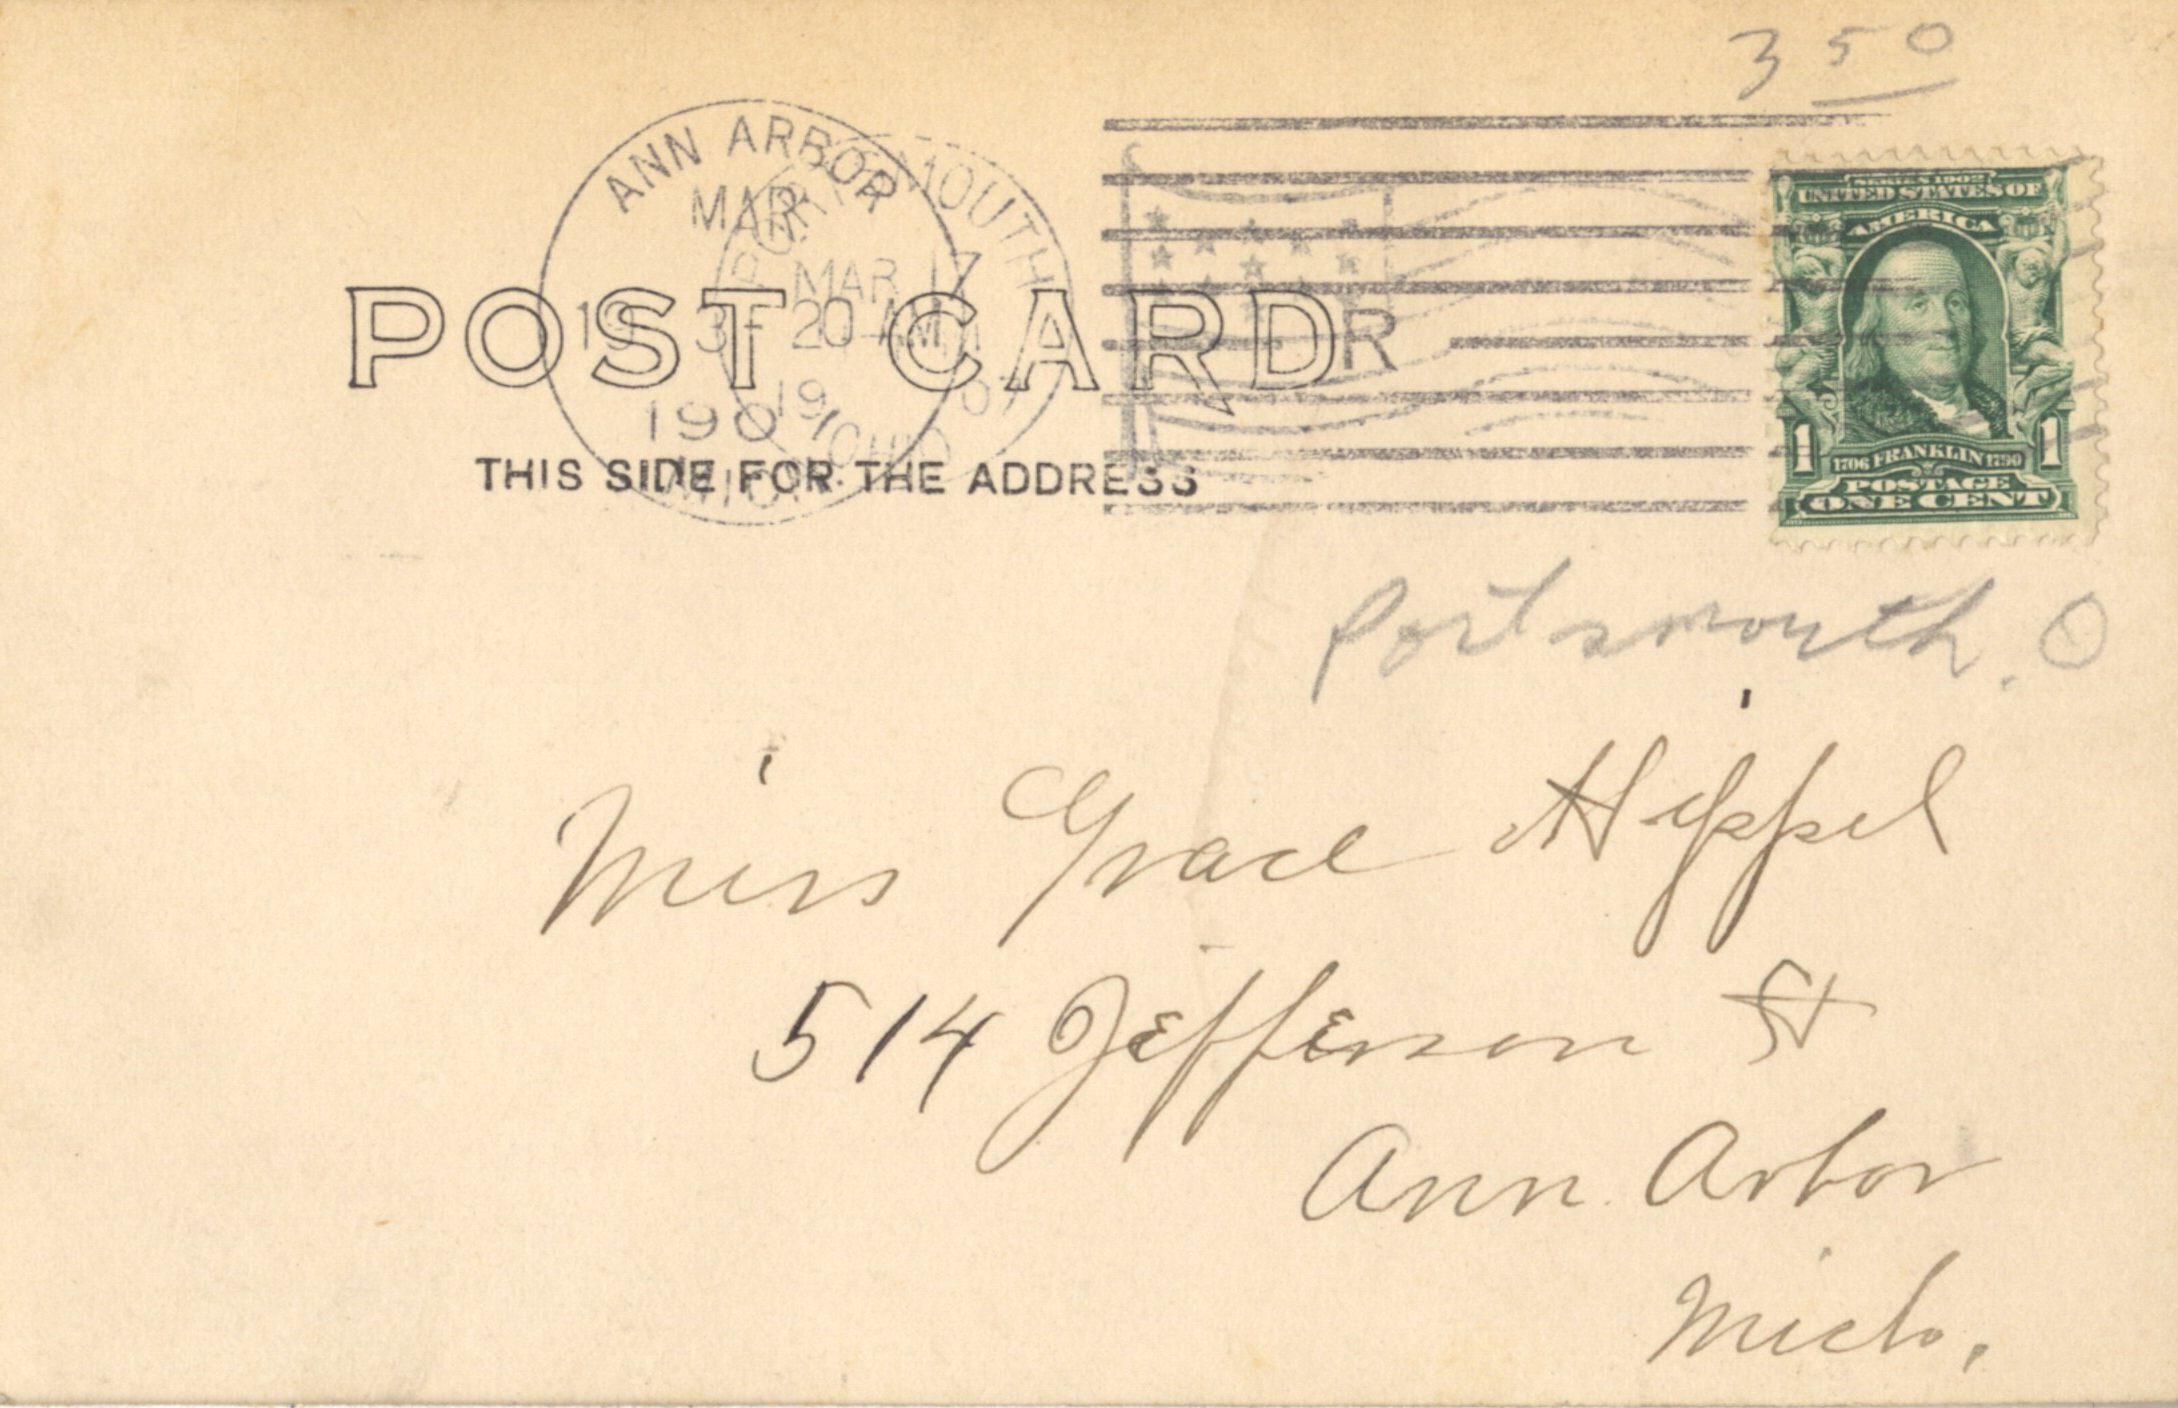 3 50
ANN ARBOR
MAR
19 3- 20 AM
1907
MICH.
PORTSMOUTH
MAR 17
19 07
OHIO
R
SERIES 1902
UNITED STATES OF
AMERICA
1706 FRANKLIN 1790
1 1
POSTAGE
ONE CENT
POST CARD
THIS SIDE FOR THE ADDRESS
Portsmouth. O
Miss Grace Hippel
514 Jefferson St
Ann Arbor
Mich.